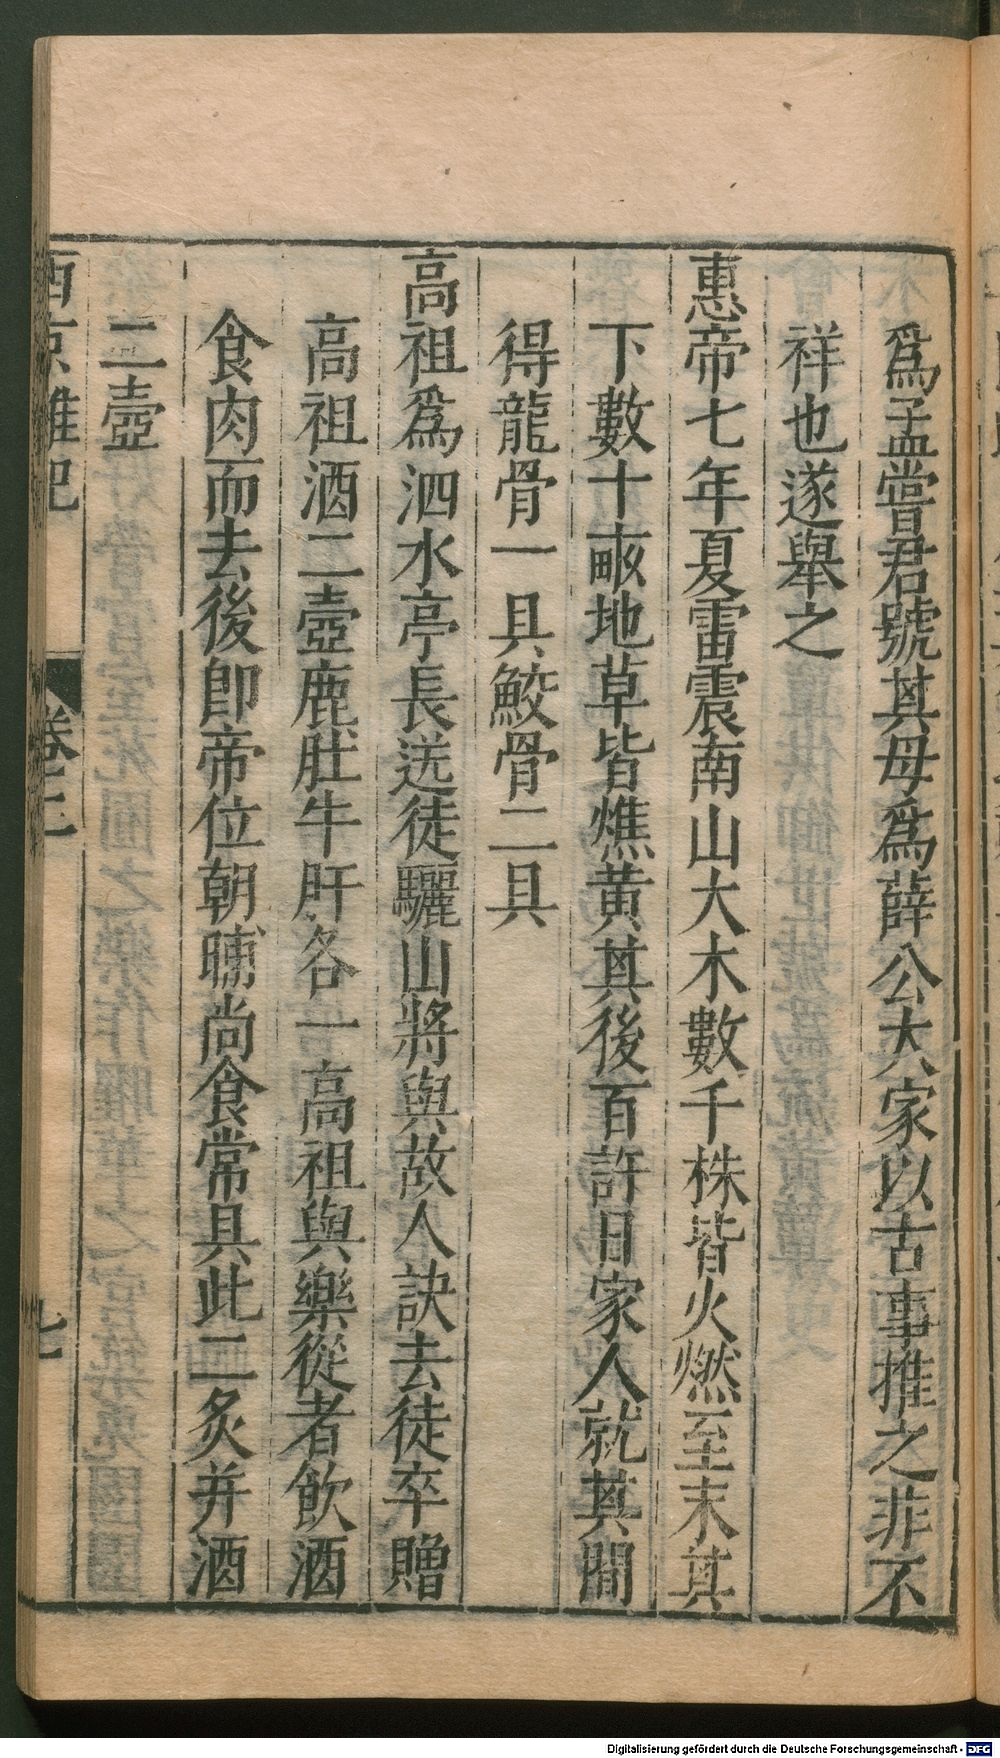 爲孟嘗君號其母爲薛公大家以古事推之非不
祥也遂舉之
惠帝七年夏雷震南山大木數千株皆火燃至末其
下數十畝地草皆燋黃其後百許日家人就其間
得龍骨一具鮫骨二具
高祖爲泗水亭長送徒驪山將與故人訣去徒卒贈
高祖酒二壺鹿肚牛肝各一高祖與樂從者飲酒
食肉而去後卽帝位朝晡尚食常具此二炙并酒
二壺
西京雜記 卷二 七
Digitalisierung gefördert durch die Deutsche Forschungsgemeinschaft - DFG